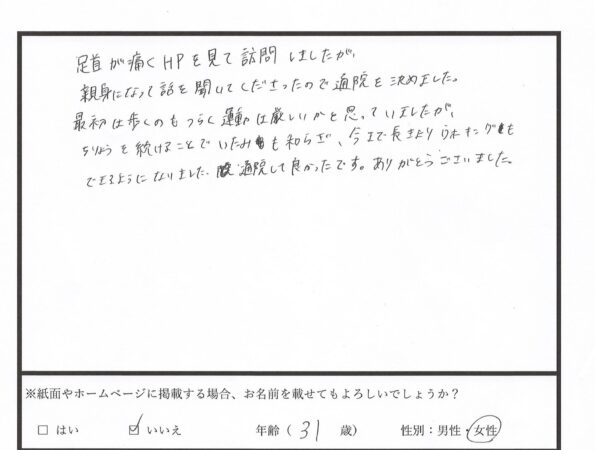 足首が痛くHPを見て訪問しましたが、
親身になって話を聞いてくださったので通院を決めました。
最初は歩くのもつらく運動は厳しいかと思っていましたが、
ちりょうを続けることでいたみも和らぎ、今まで長きよりウォーキングも
できるようになりました。通院して良かったです。ありがとうございました。
※紙面やホームページに掲載する場合、お名前を載せてもよろしいでしょうか?
□ はい ☑ いいえ 年齢(31 歳) 性別:男性・女性